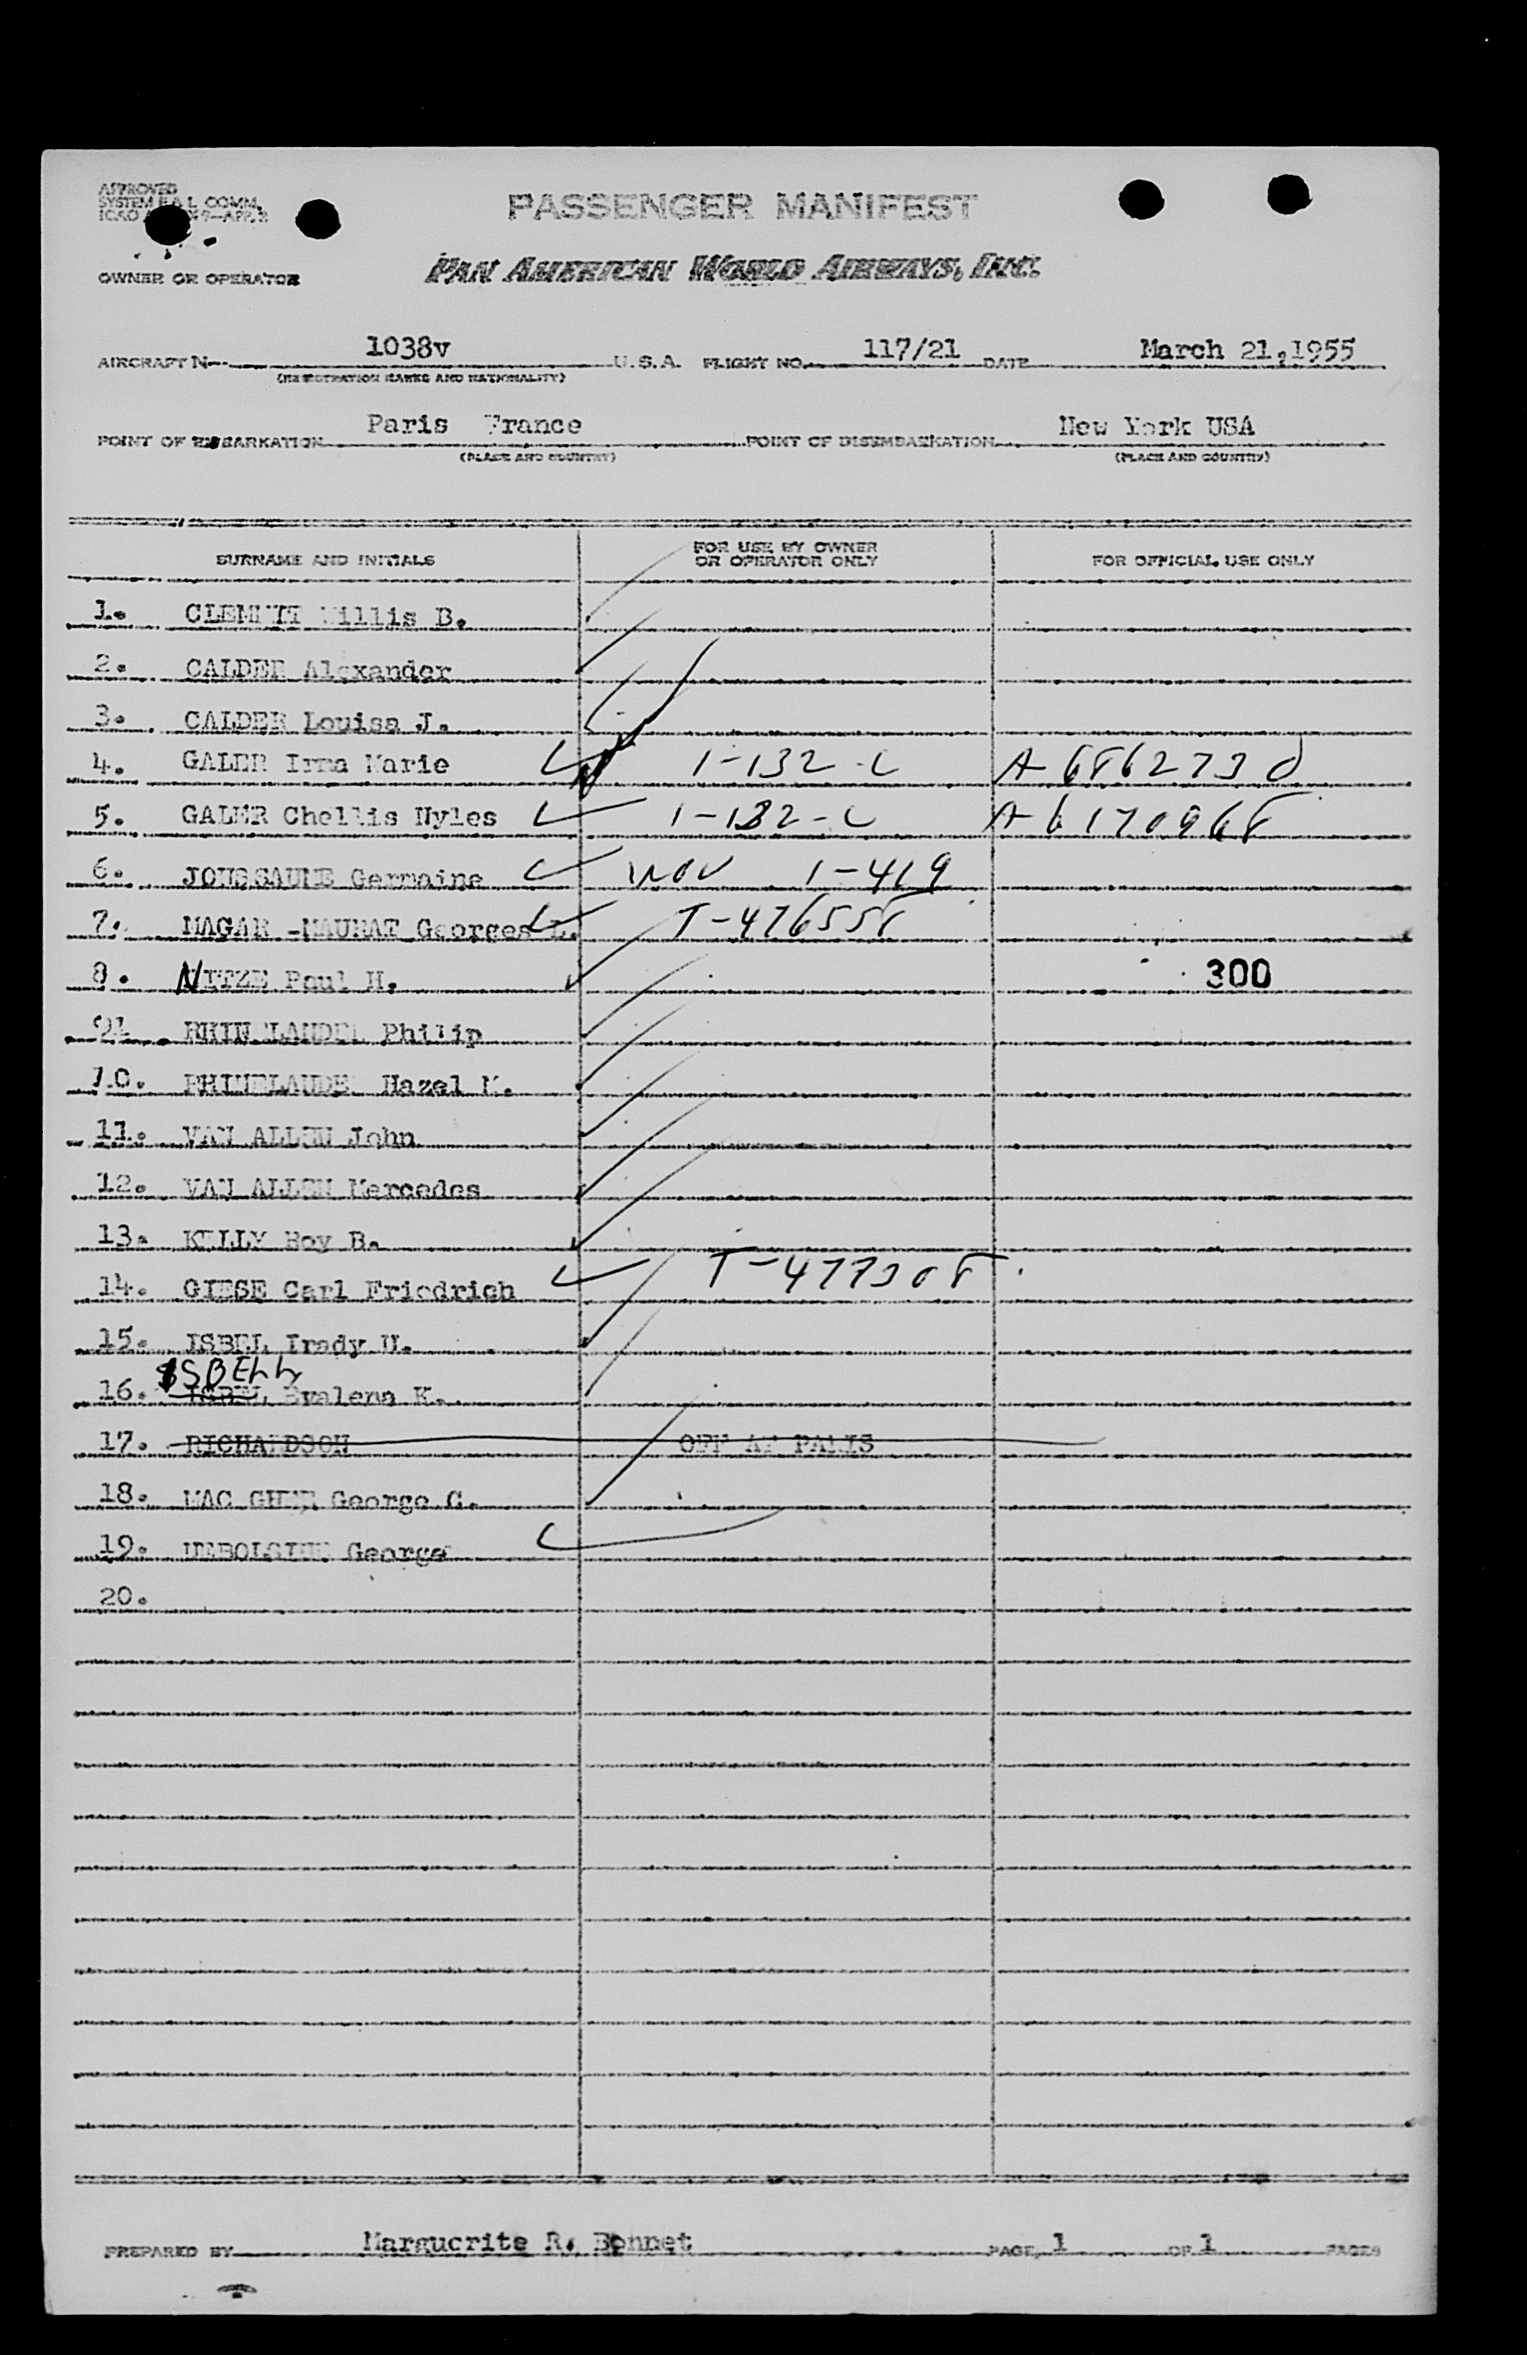 APPROVED
SYSTEM F.A.L. COMM.
ICAO
PASSENGER MANIFEST
OWNER OR OPERATOR
PAN AMERICAN WORLD AIRWAYS, INC.
AIRCRAFT N- 1038v U.S.A. FLIGHT NO. 117/21 DATE March 21,1955
(REGISTRATION MARKS AND NATIONALITY)
POINT OF EMBARKATION Paris France POINT OF DISEMBARKATION New York USA
(PLACE AND COUNTRY) (PLACE AND COUNTRY)
SURNAME AND INITIALS FOR USE BY OWNER OR OPERATOR ONLY FOR OFFICIAL USE ONLY
1. Willis B.
2. CALDER Alexander
3. CALDER Louisa J.
4. GALER Irma Marie 1-132-C A-6862730
5. GALER Chellis Nyles 1-132-C A-6170968
6. JOUSSAUME Germaine 1-419
7. MAGAR -MAURAT Georges L. T-476558
8. NITZE Paul H. 300
9. RHINELANDER Philip
10. RHINELANDER Hazel M.
11. VAN ALLEN John
12. VAN ALLEN Mercedes
13. KELLY Roy B.
14. GIESE Carl Friedrich T-477308
15. ISBEL U.
ISBELL
16. ISBEL Evalena K.
17. RICHARDSON OFF AT PARIS
18. MAC GHEE George C.
19. George
20.
PREPARED BY Marguerite R. Bonnet PAGE 1 OF 1 PAGES